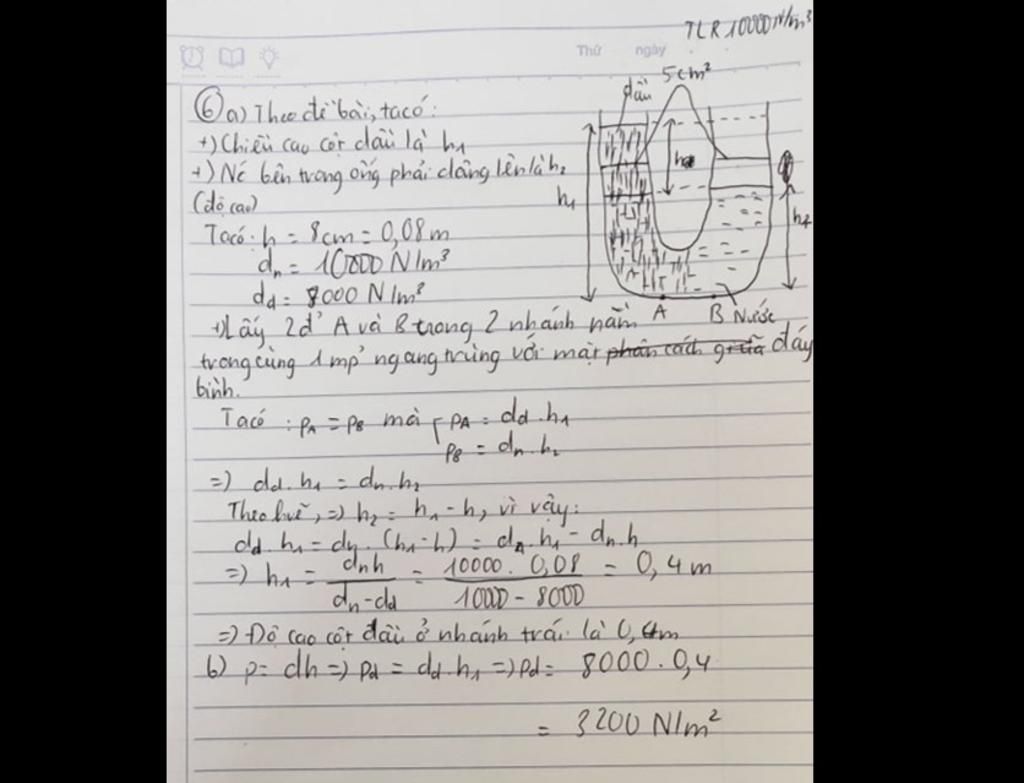 TLR 10000 N/m³
Thứ ngày
5cm²
dầu
h
h₁
h₂
A B Nước
⑥ a) Theo đề bài, ta có:
+) Chiều cao cột dầu là h₁
+) Nc bên trong ống phải dâng lên là h₂
(độ cao)
Ta có: h = 8cm = 0,08 m
dₙ = 10000 N/m³
d_d = 8000 N/m³
+) Lấy 2đ' A và B trong 2 nhánh nằm
trong cùng 1 mp' ngang trùng với mặt phân cách giữa đáy
bình.
Ta có: pA = pB mà { pA = d_d.h₁
pB = dₙ.h₂
=) d_d.h₁ = dₙ.h₂
Theo hvẽ, =) h₂ = h₁ - h, vì vậy:
d_d.h₁ = dₙ.(h₁-h) = dₙ.h₁ - dₙ.h
=) h₁ = dₙh / dₙ-d_d = 10000.0,08 / 1000 - 8000 = 0,4 m
=) Độ cao cột dầu ở nhánh trái là 0,4m
b) p = dh =) p_d = d_d.h₁ =) p_d = 8000.0,4
= 3200 N/m²